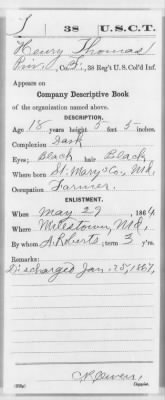 T 38 U.S.C.T.
Henry Thomas
Pvt., Co. F, 38 Reg't U.S. Col'd Inf.
Appears on
Company Descriptive Book
of the organization named above.
DESCRIPTION.
Age 18 years; height 5 feet 5 inches.
Complexion Dark
Eyes Black; hair Black
Where born St. Mary's Co., Md.
Occupation Farmer
ENLISTMENT.
When May 29, 1864.
Where Milestown, Md.
By whom A. Roberts; term 3 y'rs.
Remarks:
Discharged Jan. 25, 1867.
Copyist.